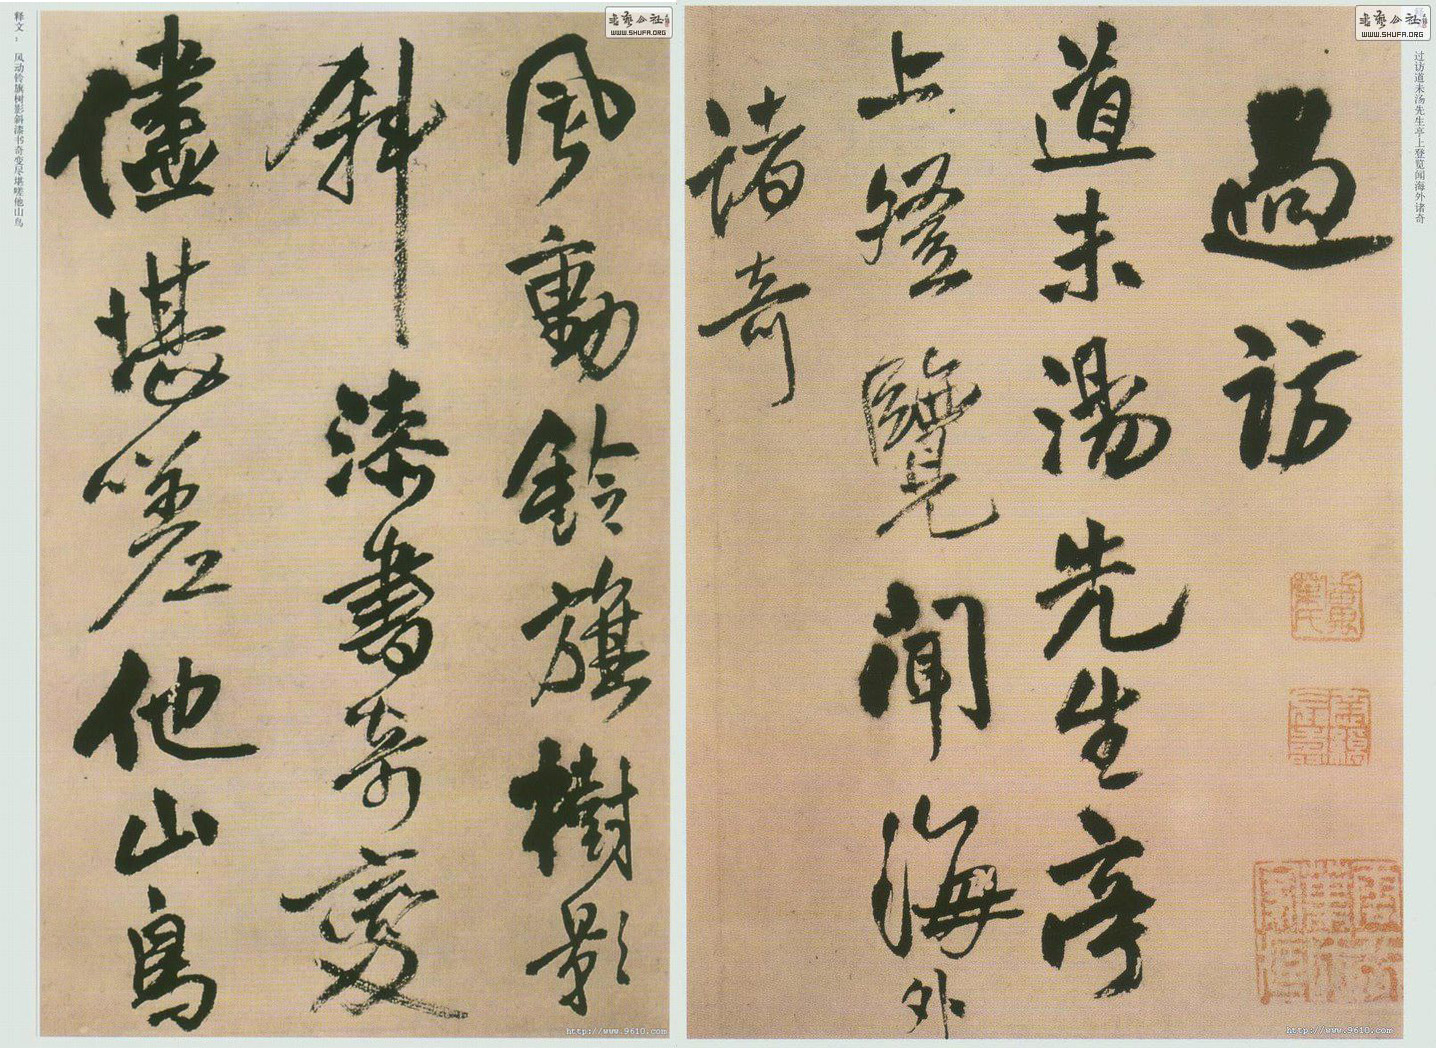 过访道未汤先生亭上登览闻海外诸奇
過訪
道未湯先生亭
上登覽聞海外
諸奇
风动铃旗树影斜漆书奇变尽堪嗟他山鸟
釋文:
風動鈴旗樹影
斜漆書奇變
儘堪嗟他山鳥
WWW.SHUFA.ORG
WWW.SHUFA.ORG
http://www.9610.com
http://www.9610.com